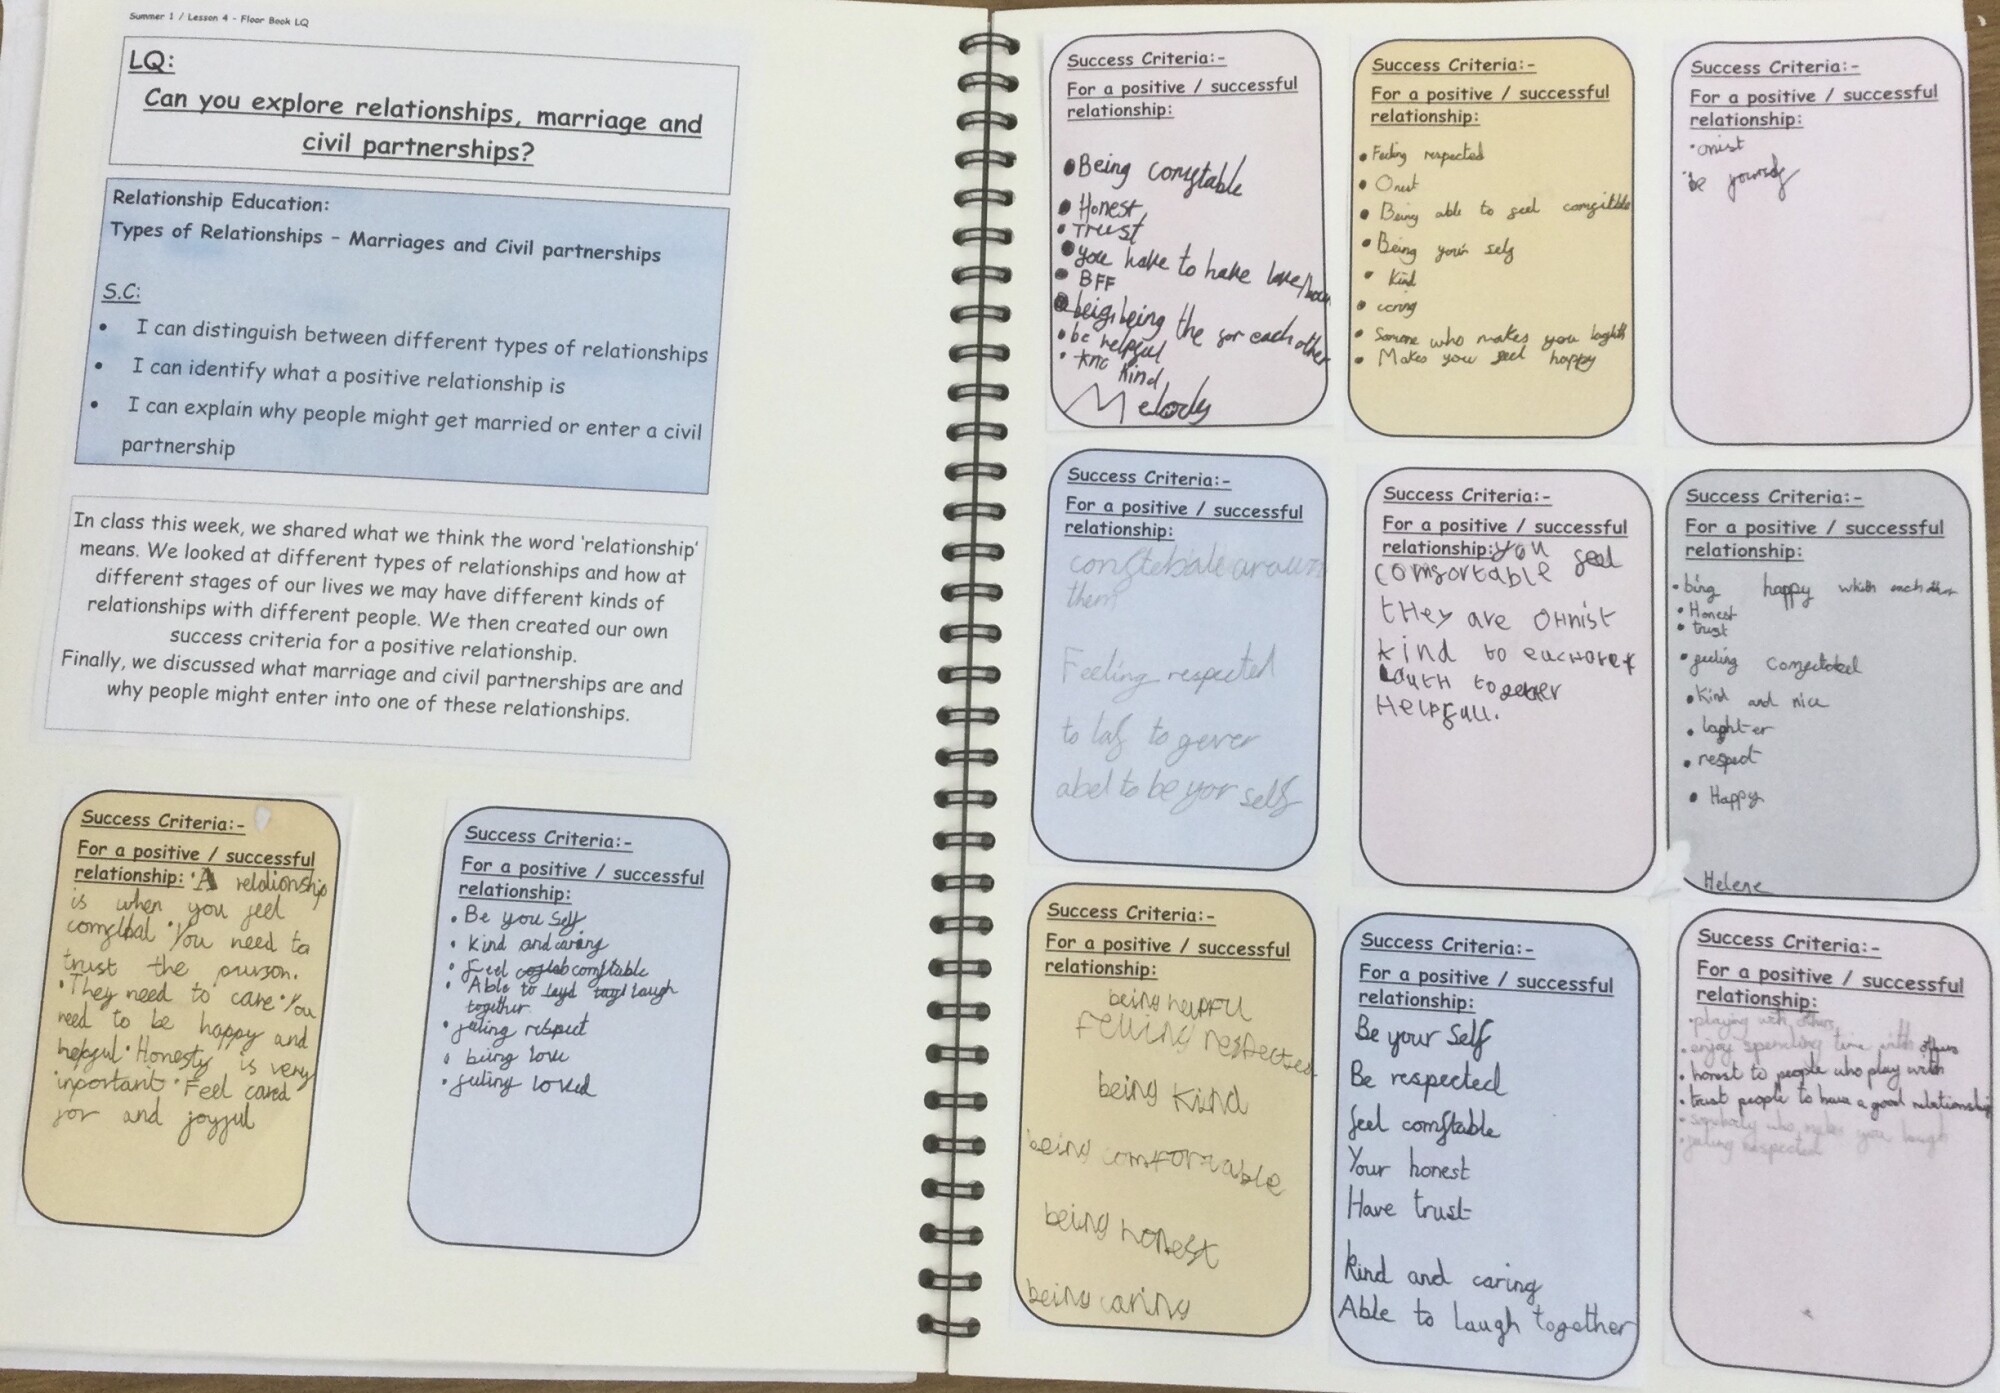 Summer 1 / Lesson 4 - Floor Book LQ
LQ:
Can you explore relationships, marriage and
civil partnerships?
Relationship Education:
Types of Relationships – Marriages and Civil partnerships
S.C:
• I can distinguish between different types of relationships
• I can identify what a positive relationship is
• I can explain why people might get married or enter a civil
partnership
In class this week, we shared what we think the word 'relationship'
means. We looked at different types of relationships and how at
different stages of our lives we may have different kinds of
relationships with different people. We then created our own
success criteria for a positive relationship.
Finally, we discussed what marriage and civil partnerships are and
why people might enter into one of these relationships.
Success Criteria:-
For a positive / successful
relationship: • A relationship
is when you feel
• You need to
trust the purson.
• They need to care • You
need to be happy and
helpful • Honesty is very
inportant • Feel cared
for and joyful
Success Criteria:-
For a positive / successful
relationship:
• Be you self
• kind and caring
• Feel comftable
• Able to laugh
together
• feling respect
• being love
• feling loved
Success Criteria:-
For a positive / successful
relationship:
• Being comftable
• Honest
• Trust
• you have to have love/
• BFF
• being the for each other
• be helpful
• kind
Melody
Success Criteria:-
For a positive / successful
relationship:
• Feeling respected
• Onist
• Being able to feel
• Being your self
• kind
• caring
• Someone who makes you
• Makes you feel happy
Success Criteria:-
For a positive / successful
relationship:
• onist
• be yourself
Success Criteria:-
For a positive / successful
relationship:
them
Feeling respected
to laf to gever
abel to be yor self
Success Criteria:-
For a positive / successful
relationship: you feel
comfortable
they are ohnist
kind to
together
Helpfull.
Success Criteria:-
For a positive / successful
relationship:
• bing happy which
• Honest
• trust
• feeling
• Kind and nice
• laght er
• respect
• Happy
Helene
Success Criteria:-
For a positive / successful
relationship:
being helpful
Felling respected
being kind
being comfortable
being honest
being caring
Success Criteria:-
For a positive / successful
relationship:
Be your self
Be respected
feel comftable
Your honest
Have trust
kind and caring
Able to laugh together
Success Criteria:-
For a positive / successful
relationship:
• playing with others
• enjoy spending time with others
• honest to people who play with
• trust people to have a good relationship
• who makes you laugh
• feling respected